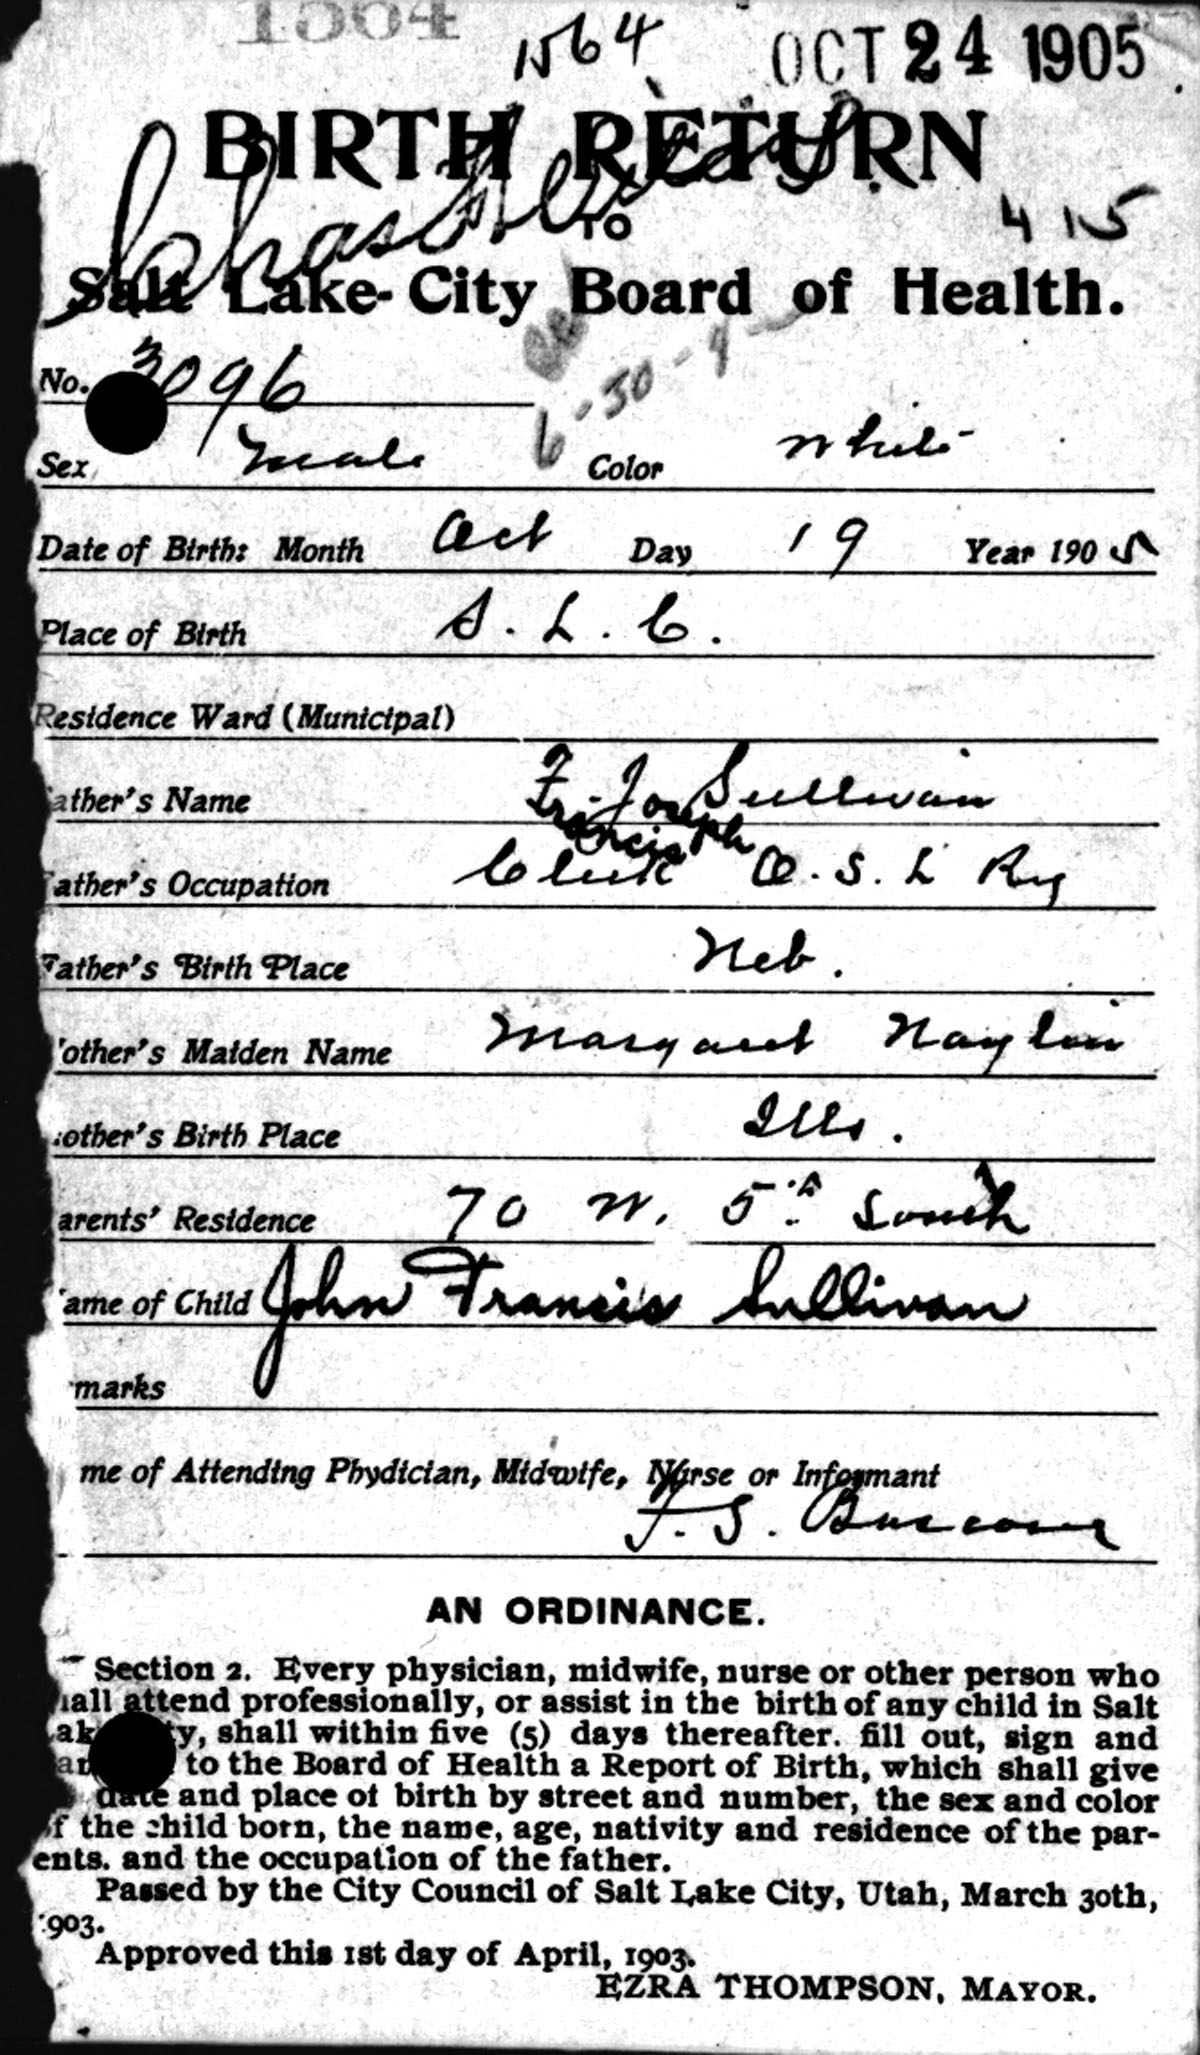 1564
1564 OCT 24 1905
BIRTH RETURN
TO
415
Salt Lake City Board of Health.
No. 3096
6-30-4
Sex Male Color White
Date of Birth: Month Oct Day 19 Year 1905
Place of Birth S. L. C.
Residence Ward (Municipal)
ather's Name F. J. Sullivan
Francis Joseph
ather's Occupation Clerk O. S. L Ry
Father's Birth Place Neb.
other's Maiden Name Margaret
other's Birth Place Ills.
arents' Residence 70 W. 5th South
ame of Child John Francis Sullivan
marks
me of Attending Phydician, Midwife, Nurse or Informant
F. S. Bascom
AN ORDINANCE.
Section 2. Every physician, midwife, nurse or other person who
hall attend professionally, or assist in the birth of any child in Salt
ak ty, shall within five (5) days thereafter. fill out, sign and
to the Board of Health a Report of Birth, which shall give
date and place of birth by street and number, the sex and color
f the child born, the name, age, nativity and residence of the par-
ents. and the occupation of the father.
Passed by the City Council of Salt Lake City, Utah, March 30th,
1903.
Approved this 1st day of April, 1903.
EZRA THOMPSON, MAYOR.